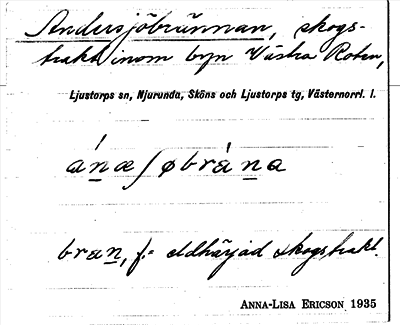 Andersjöbrännan, skogs-
trakt inom byn Västra Roten,
Ljustorps sn, Njurunda, Sköns och Ljustorps tg, Västernorrl. l.
ánæʃøbrána
bran, f. = eldhärjad skogstrakt.
ANNA-LISA ERICSON 1935